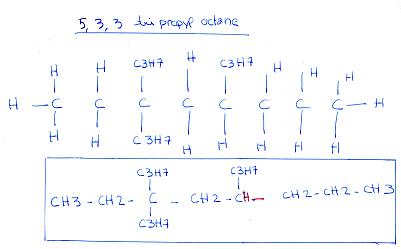 5, 3, 3 tri propyl octane
H H C3H7 H C3H7 H H H
H — C C C C C C C C — H
H H C3H7 H H H H H
C3H7 C3H7
CH3 - CH2 - C - CH2 - CH — CH2 - CH2 - CH3
C3H7